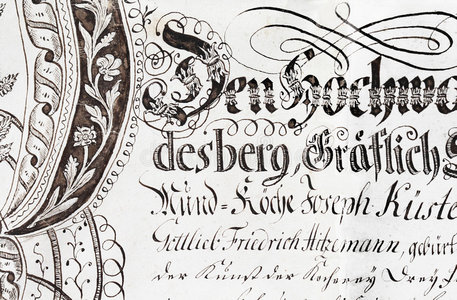 Den Hochwo
desberg, Gräflich S
Mund-Koche Joseph Küste
Gottlieb Friedrich Hitzmann, gebürt
der Kunst der Kocherey Drey